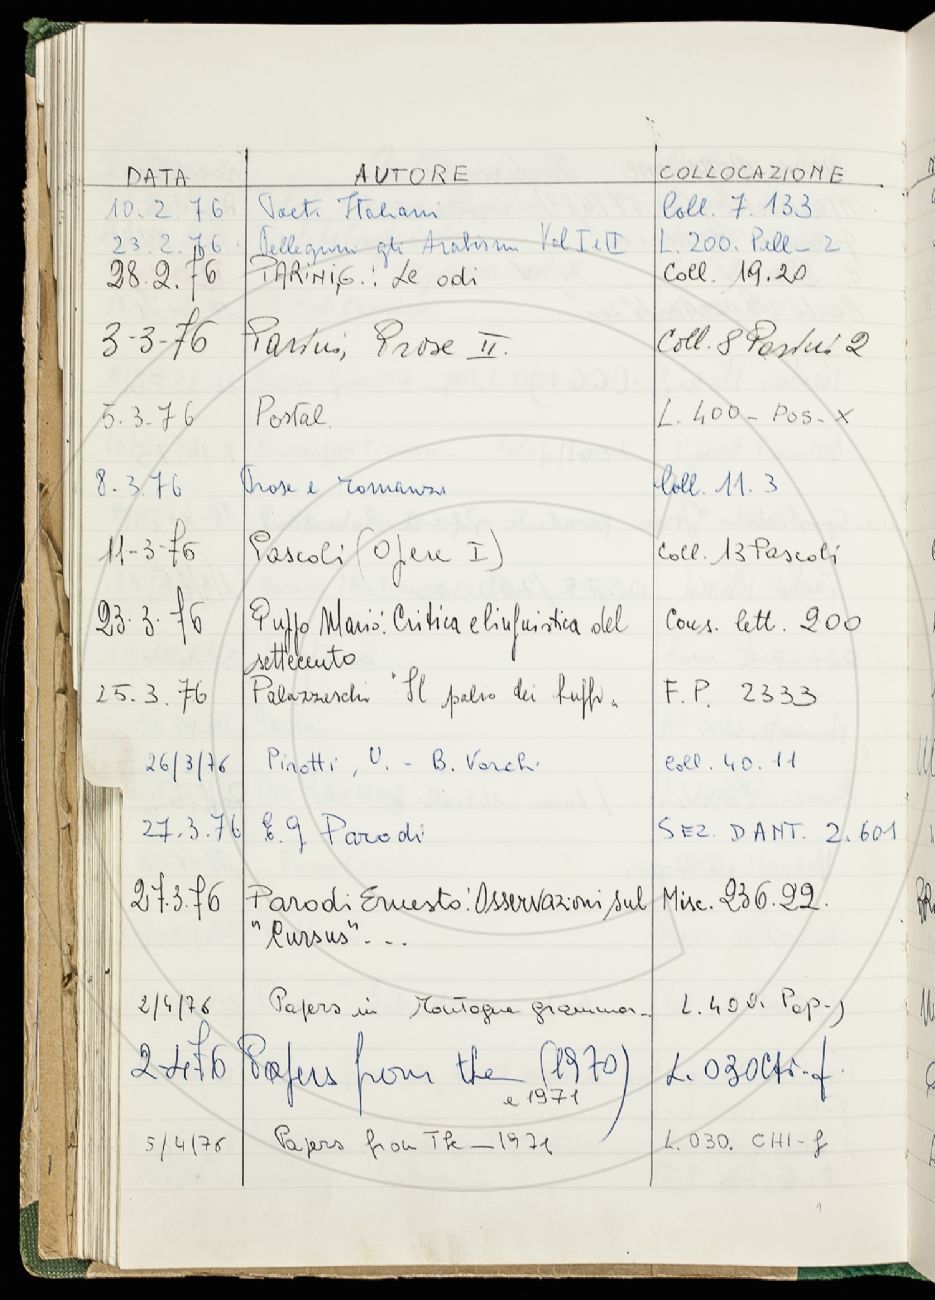 DATA AUTORE COLLOCAZIONE
10. 2 76 Poeti Italiani Coll. 7. 133
23. 2. 76 Pellegrini gli Vol I e II L. 200. Pell - 2
28.2.76 PARINI G.: Le odi Coll. 19.20
3-3-76 Parini, Prose II. Coll. 8 Parini 2
5.3.76 Postal L. 400 - Pos - X
8. 3. 76 Prose e romanzi Coll. 11. 3
11-3-76 Pascoli (Opere I) Coll. 13 Pascoli
23. 3. 76 Puppo Mario: Critica e linguistica del Cons. lett. 200
settecento
25. 3. 76 Palazzeschi "Il palio dei buffi" F. P. 2333
26/3/76 Pirotti, U. - B. Varchi coll. 40. 11
27.3.76 E. G Parodi SEZ. DANT. 2.601
27.3.76 Parodi Ernesto: Osservazioni sul Misc. 236.22.
"Cursus"...
2/4/76 Papers in Montague grammar - L. 400. Pap-J
2-4-76 Papers from the (1970) L. 030 Chi-f.
e 1971
5/4/76 Papers from The - 1971 L. 030. CHI-f